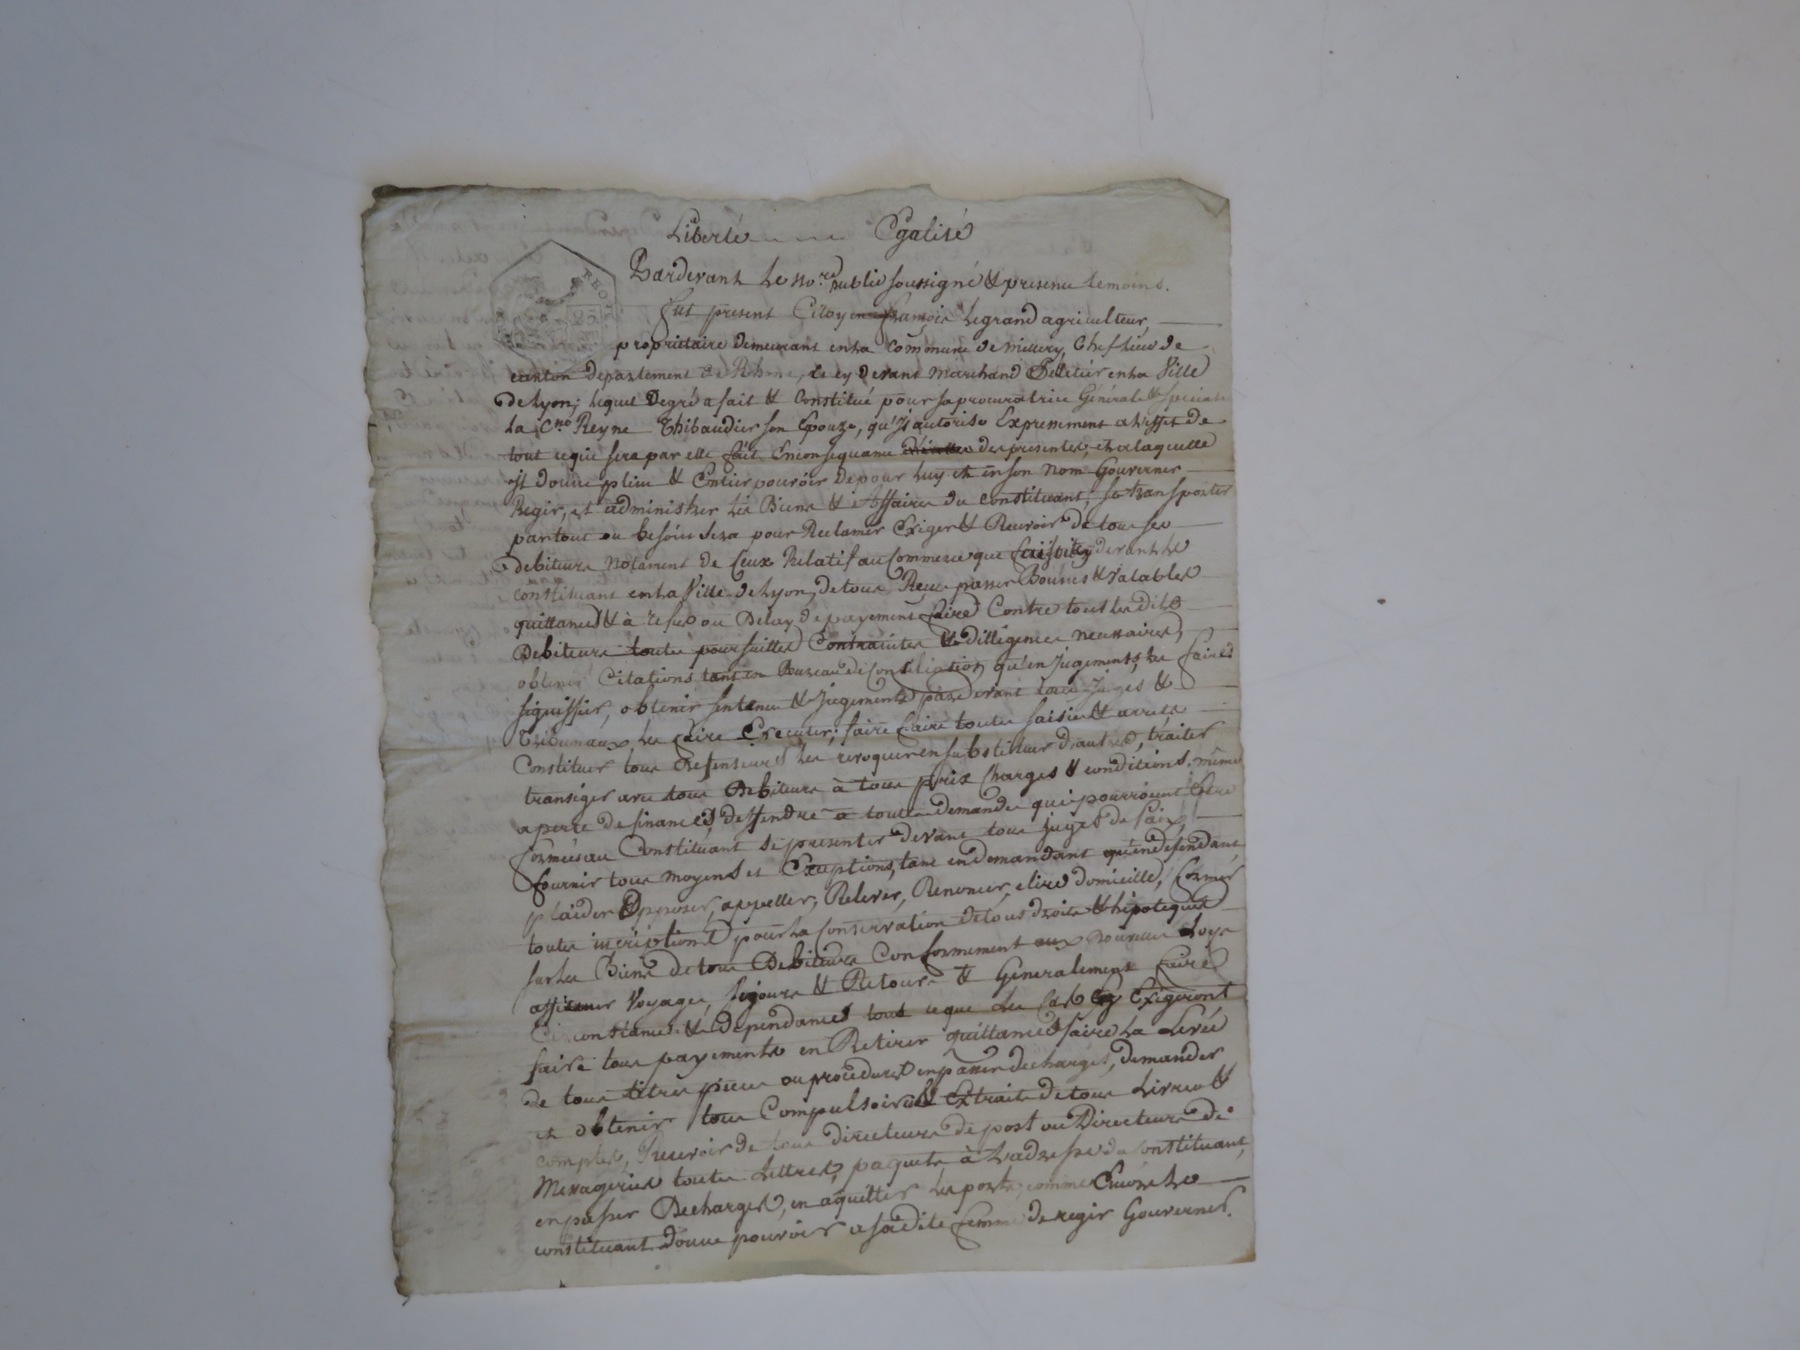 Liberté Egalité
Pardevant Le No.re public soussigné & presence temoins.
fut present Citoyen françois Legrand agriculteur,
proprietaire demeurant en La Commune de Millery, Chef Lieu de
canton departement du Rhone, cy devant Marchand Peletier en La Ville
de Lyon; lequel Degré a fait & Constitué pour sa procuratrice Générale & Speciale
La C.ne Reyne Thibaudier son Epouze, qu'il autorise Expressement a L'effet de
tout ce qui sera par elle fait En consequance des presentes, et a laquelle
est donné plein & Entier pouvoir de pour Luy et en son nom Gouverner
Regir, et administrer Les Biens & Affaires du constituant, se transporter
partout ou besoin sera pour Reclamer Exiger & Recevoir de tous ses
debiteurs Notament de Ceux Relatif au Commerce que faisoit cy devant Le
constituant en La Ville de Lyon, de tous Reçu passer Bonnes & Valables
quittances & à refus ou Delay de payement faire Contre tous Les dits
Debiteurs toutes poursuittes Contraintes & dilligences necessaires,
obtenir Citations tant en Bureau de Conciliation qu'en jugements, Les faire
signiffier, obtenir sentence & jugements pardevant tous juges &
Tribunaux, Les faire Executer; faire faire toutes saisies & arrets
Constituer tous Defenseurs Les revoquer en substituer d'autres, traiter
transiger avec tous Debiteurs à tous prix Charges & conditions même
a perte de finances, deffendre a toutes demandes qui pourroient Etre
formées au Constituant se presenter devant tous juges de Paix
fournir tous moyens et Exceptions, tant en demandant qu'en defendant
plaider Opposer, appeller, Relever, Renoncer, elire domicille, former
toutes inscriptions pour La Conservation de tous droits & hipoteques
sur Les Biens de tous Debiteurs Conformement aux nouvelles Loys
affirmer Voyages, sejours & Retours & Generalement faire
Circonstances & Dependances tout ce que Les Cas Exigeront
faire tous payements en Retirer quittances faire La Levée
de tous titres pieces ou procedures en passer decharges, demander
et obtenir tous Compulsoires & Extraits de tous Livres &
comptes, Recevoir de tous directeurs de post ou Directeurs de
Messageries toutes Lettres, paquets à L'adresse du Constituant,
en passer Decharges, en aquitter Les ports, comme Encore Le
constituant donne pouvoir a sadite femme de regir Gouverner.